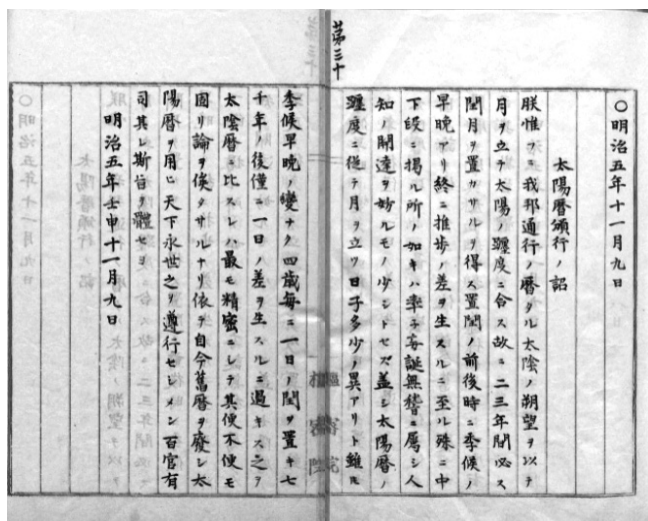 第三十
〇明治五年十一月九日
太陽暦頒行ノ詔
朕惟フニ我邦通行ノ暦タル太陰ノ朔望ヲ以テ
月ヲ立テ太陽ノ躔度ニ合ス故ニ二三年間必ス
閏月ヲ置カサルヲ得ス置閏ノ前後時ニ季候ノ
早晩アリ終ニ推歩ノ差ヲ生スルニ至ル殊ニ中
下段ニ掲ル所ノ如キハ率子妄誕無稽ニ属シ人
知ノ開達ヲ妨ルモノ少シトセズ蓋シ太陽暦ノ
躔度ニ従テ月ヲ立ツ日子多少ノ異アリト雖モ
季候早晩ノ變ナク四歳毎ニ一日ノ閏ヲ置キ七
千年ノ後僅ニ一日ノ差ヲ生スルニ過キス之ヲ
太陰暦ニ比スレハ最モ精密ニシテ其便不便モ
固リ論ヲ俟タサルナリ依テ自今舊暦ヲ廃シ太
陽暦ヲ用ヒ天下永世之ヲ遵行セシメン百官有
司其レ斯旨ヲ體セヨ
明治五年壬申十一月九日
樞密院